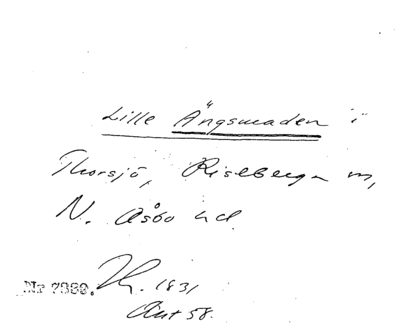 Lille Ängsmaden i
Thorsjö, Riseberga sn,
N. Åsbo hd.
Nr 7989. 1831
Akt 58.